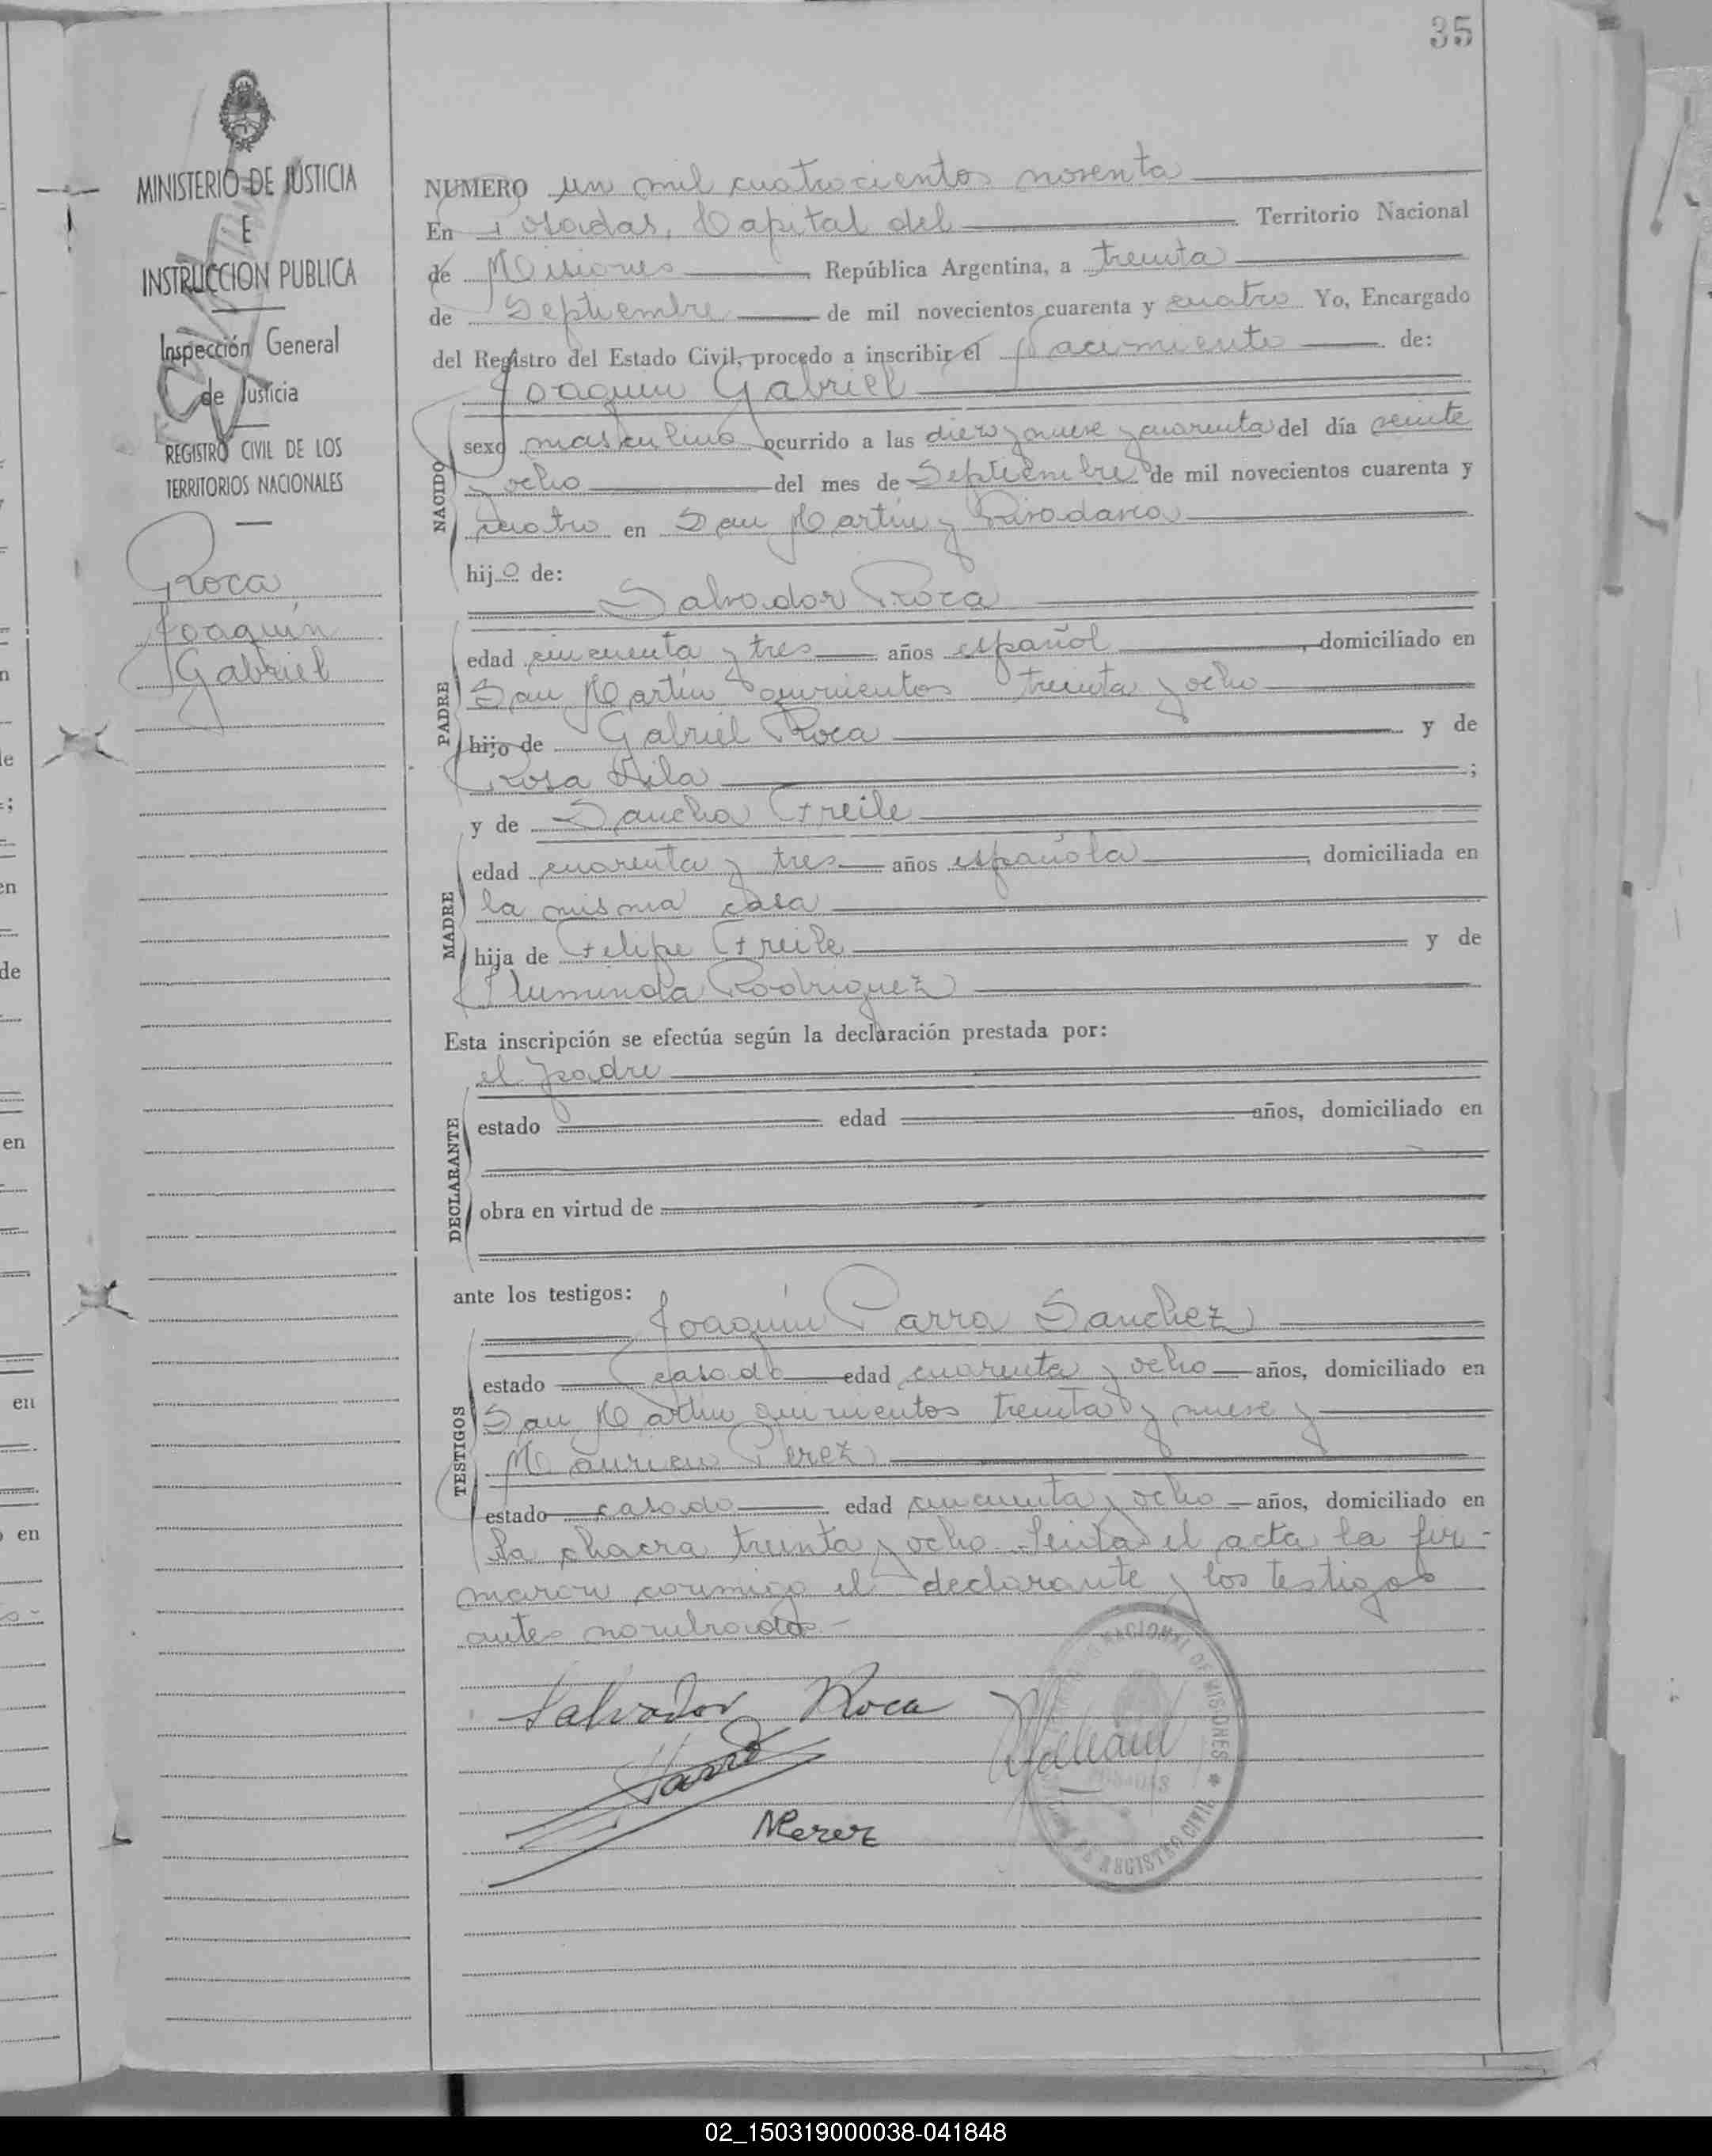 35
MINISTERIO DE JUSTICIA
E
INSTRUCCION PUBLICA
Inspección General
de Justicia
REGISTRO CIVIL DE LOS
TERRITORIOS NACIONALES
Roca
Joaquín
Gabriel
NUMERO un mil cuatrocientos noventa
En Posadas, Capital del Territorio Nacional
de Misiones República Argentina, a treinta
de Septiembre de mil novecientos cuarenta y cuatro Yo, Encargado
del Registro del Estado Civil, procedo a inscribir el nacimiento de:
Joaquin Gabriel
NACIDO
sexo masculino ocurrido a las diez y nueve y cuarenta del día veinte
y ocho del mes de Septiembre de mil novecientos cuarenta y
cuatro en San Martin y Rivadavia
hijo de:
Salvador Roca
PADRE
edad cincuenta y tres años español, domiciliado en
San Martín quinientos treinta y ocho
hijo de Gabriel Roca y de
Rosa Avila;
y de Sancha Freile
MADRE
edad cuarenta y tres años española, domiciliada en
la misma casa
hija de Felipe Freile y de
Iluminda Rodriguez
Esta inscripción se efectúa según la declaración prestada por:
el padre
DECLARANTE
estado edad años, domiciliado en
obra en virtud de
ante los testigos:
Joaquín Parra Sanchez
TESTIGOS
estado casado edad cuarenta y ocho años, domiciliado en
San Martin quinientos treinta y nueve y
Mauricio Perez
estado casado edad cincuenta y ocho años, domiciliado en
la chacra treinta y ocho. Leida el acta la fir-
maron conmigo el declarante y los testigos
antes nombrados.-
Salvador Roca
Parra
MPerez
NACIONAL DE MISIONES
POSADAS
REGISTRO CIVIL
02_150319000038-041848